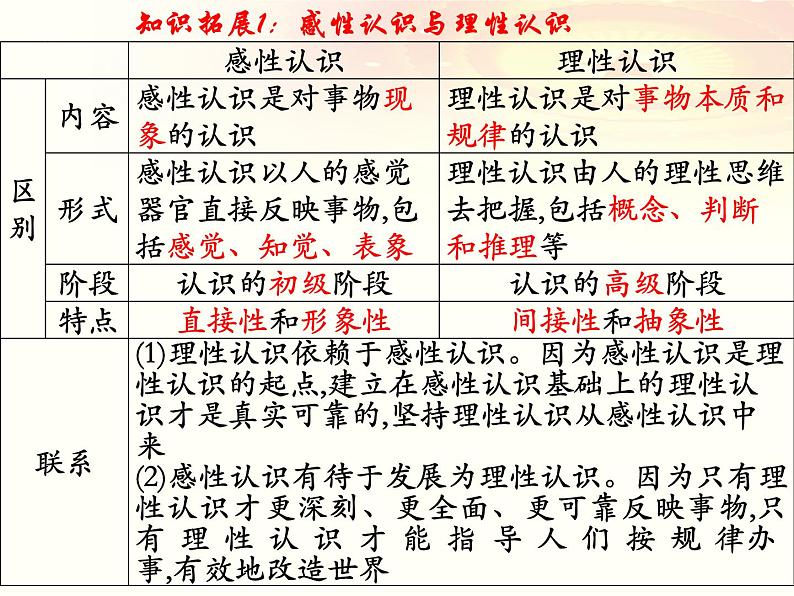 知识拓展1：感性认识与理性认识
感性认识
理性认识
区
别
内容
感性认识是对事物现
象的认识
理性认识是对事物本质和
规律的认识
形式
感性认识以人的感觉
器官直接反映事物,包
括感觉、知觉、表象
理性认识由人的理性思维
去把握,包括概念、判断
和推理等
阶段
认识的初级阶段
认识的高级阶段
特点
直接性和形象性
间接性和抽象性
联系
(1)理性认识依赖于感性认识。因为感性认识是理
性认识的起点,建立在感性认识基础上的理性认
识才是真实可靠的,坚持理性认识从感性认识中
来
(2)感性认识有待于发展为理性认识。因为只有理
性认识才更深刻、更全面、更可靠反映事物,只
有理性认识才能指导人们按规律办
事,有效地改造世界